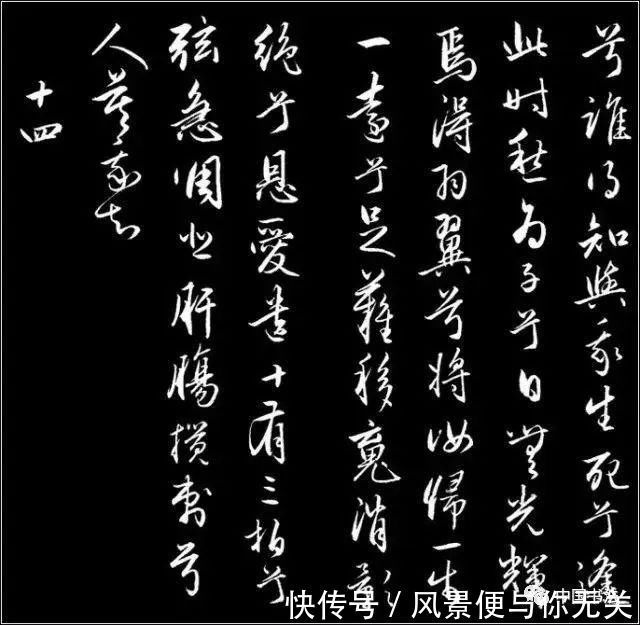 兮誰得知與我生死兮逢
此時愁為子兮日無光輝
焉得羽翼兮將汝歸一步
一遠兮足難移魂消影
絕兮恩愛遺十有三拍兮
弦急調悲肝腸攪刺兮
人莫我知
十四
中国书法
快传号 / 风景便与你无关